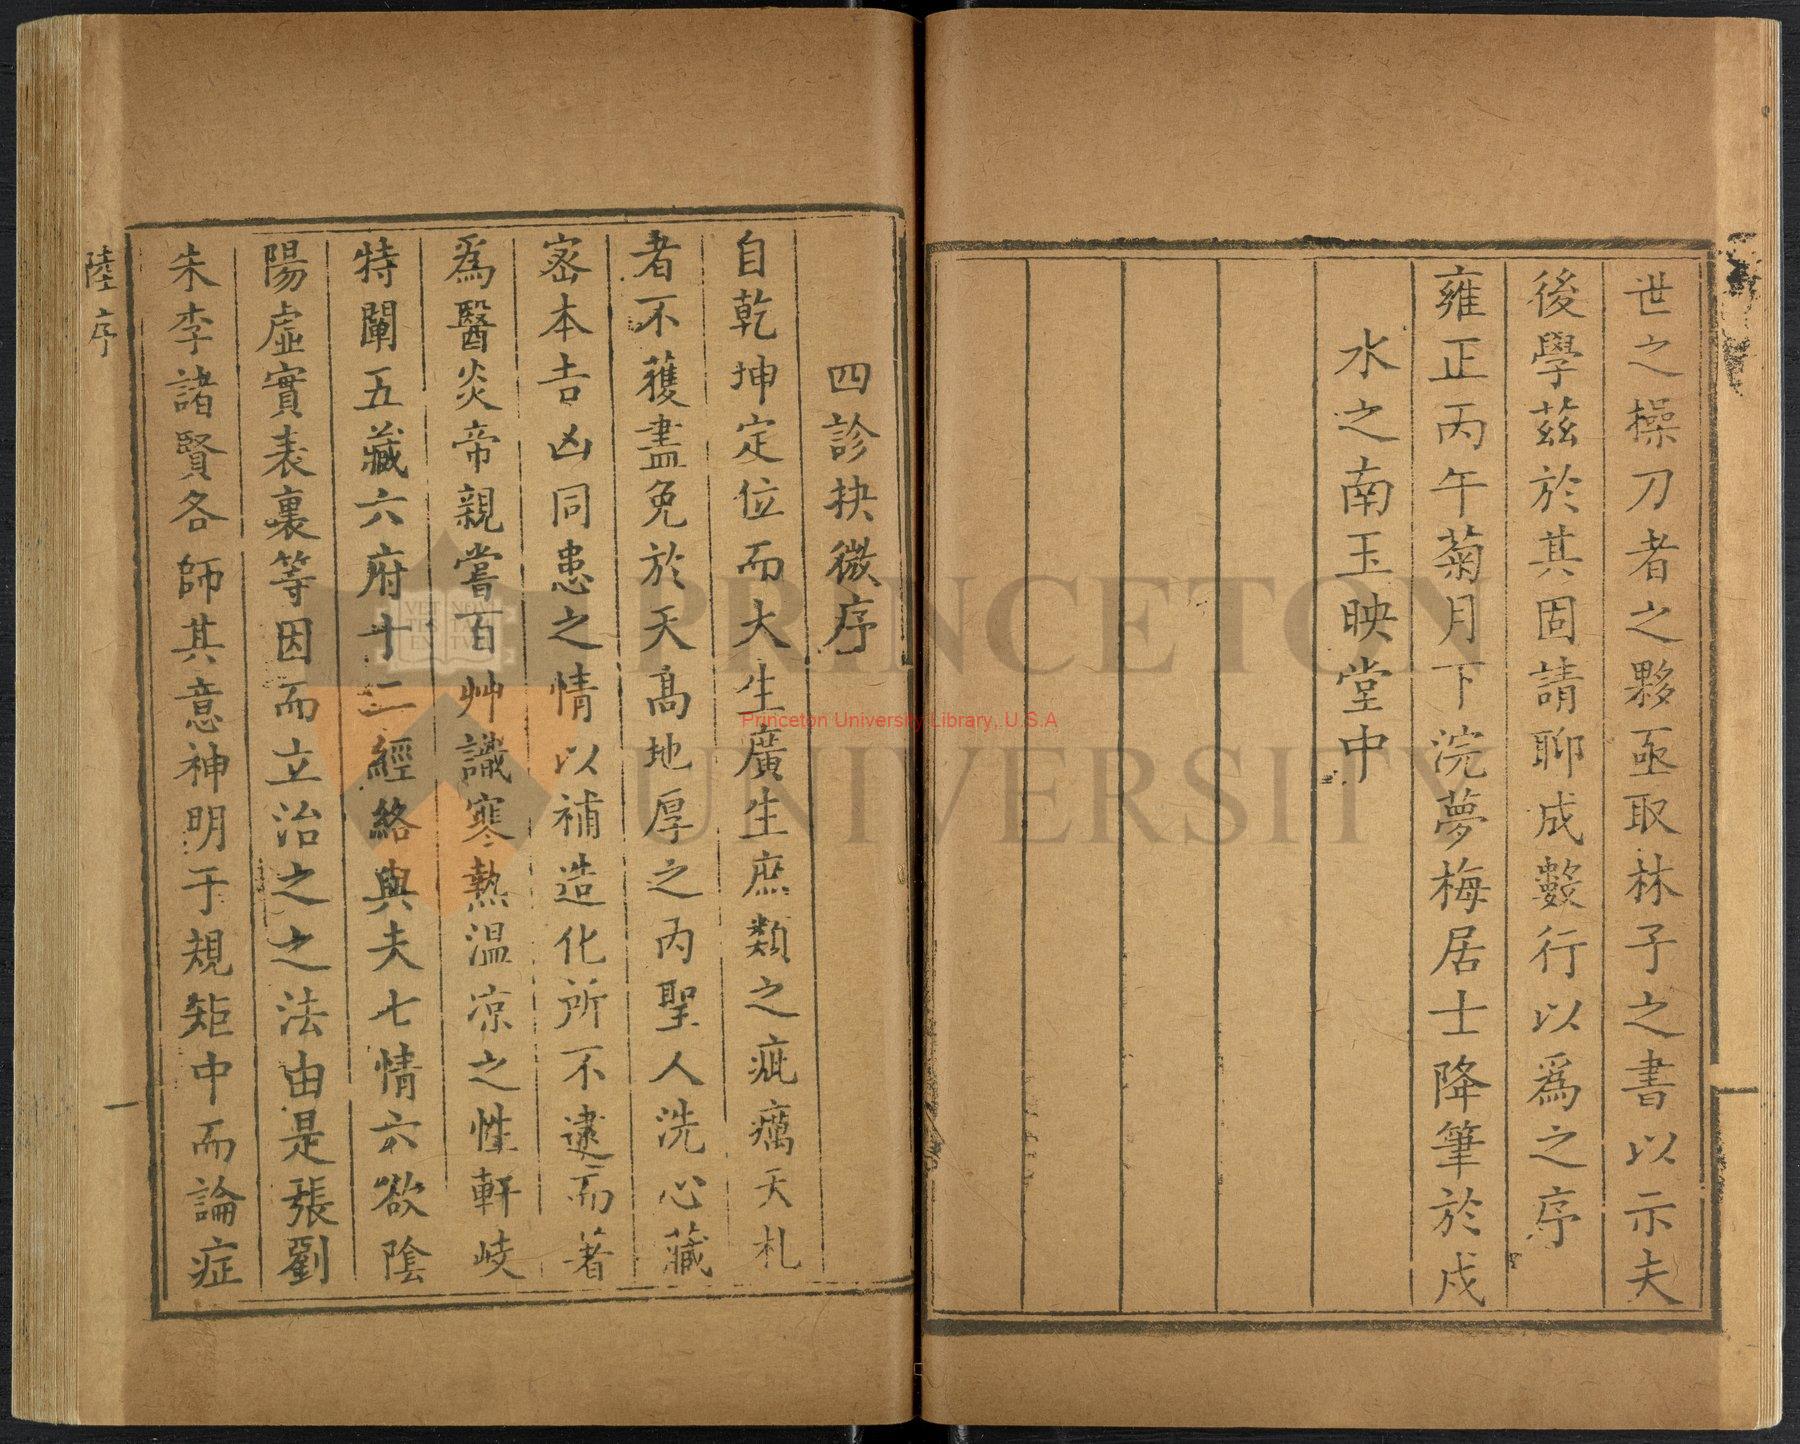 世之操刀者之夥亟取林子之書以示夫
後學茲於其固請聊成數行以爲之序
雍正丙午菊月下浣夢梅居士降筆於戍
水之南玉映堂中
四診抉微序
自乾坤定位而大生廣生庶類之疵癘夭札
者不獲盡免於天高地厚之內聖人洗心藏
密本吉凶同患之情以補造化所不逮而著
爲醫炎帝親嘗百艸識寒熱温凉之性軒岐
特闡五藏六府十二經絡與夫七情六欲陰
陽虛實表裏等因而立治之之法由是張劉
朱李諸賢各師其意神明于規矩中而論症
陸序
一
PRINCETON
UNIVERSITY
Princeton University Library, U.S.A
VET NOV
TES TVM
EN